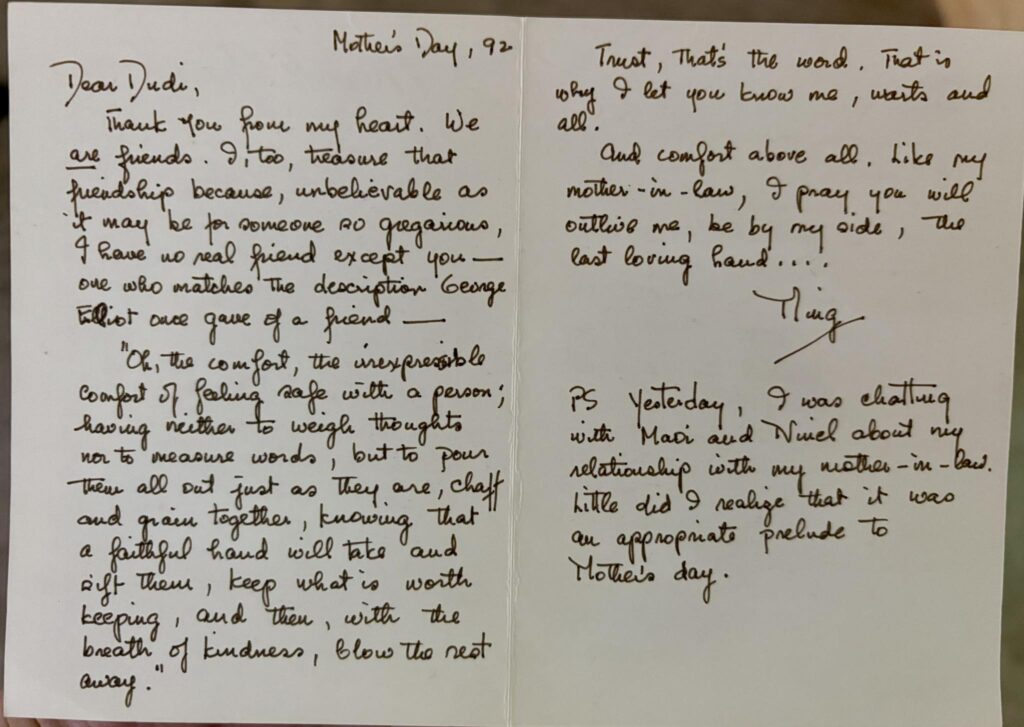 Mother's Day, 92
Dear Dudi,
Thank you from my heart. We
are friends. I, too, treasure that
friendship because, unbelievable as
it may be for someone so gregarious,
I have no real friend except you —
one who matches the description George
Elliot once gave of a friend —
"Oh, the comfort, the inexpressible
comfort of feeling safe with a person;
having neither to weigh thoughts
nor to measure words, but to pour
them all out just as they are, chaff
and grain together, knowing that
a faithful hand will take and
sift them, keep what is worth
keeping, and then, with the
breath of kindness, blow the rest
away."
Trust, that's the word. That is
why I let you know me, warts and
all.
And comfort above all. Like my
mother-in-law, I pray you will
outlive me, be by my side, the
last loving hand....
Ming
PS Yesterday, I was chatting
with Maoi and Ninel about my
relationship with my mother-in-law.
Little did I realize that it was
an appropriate prelude to
Mother's day.